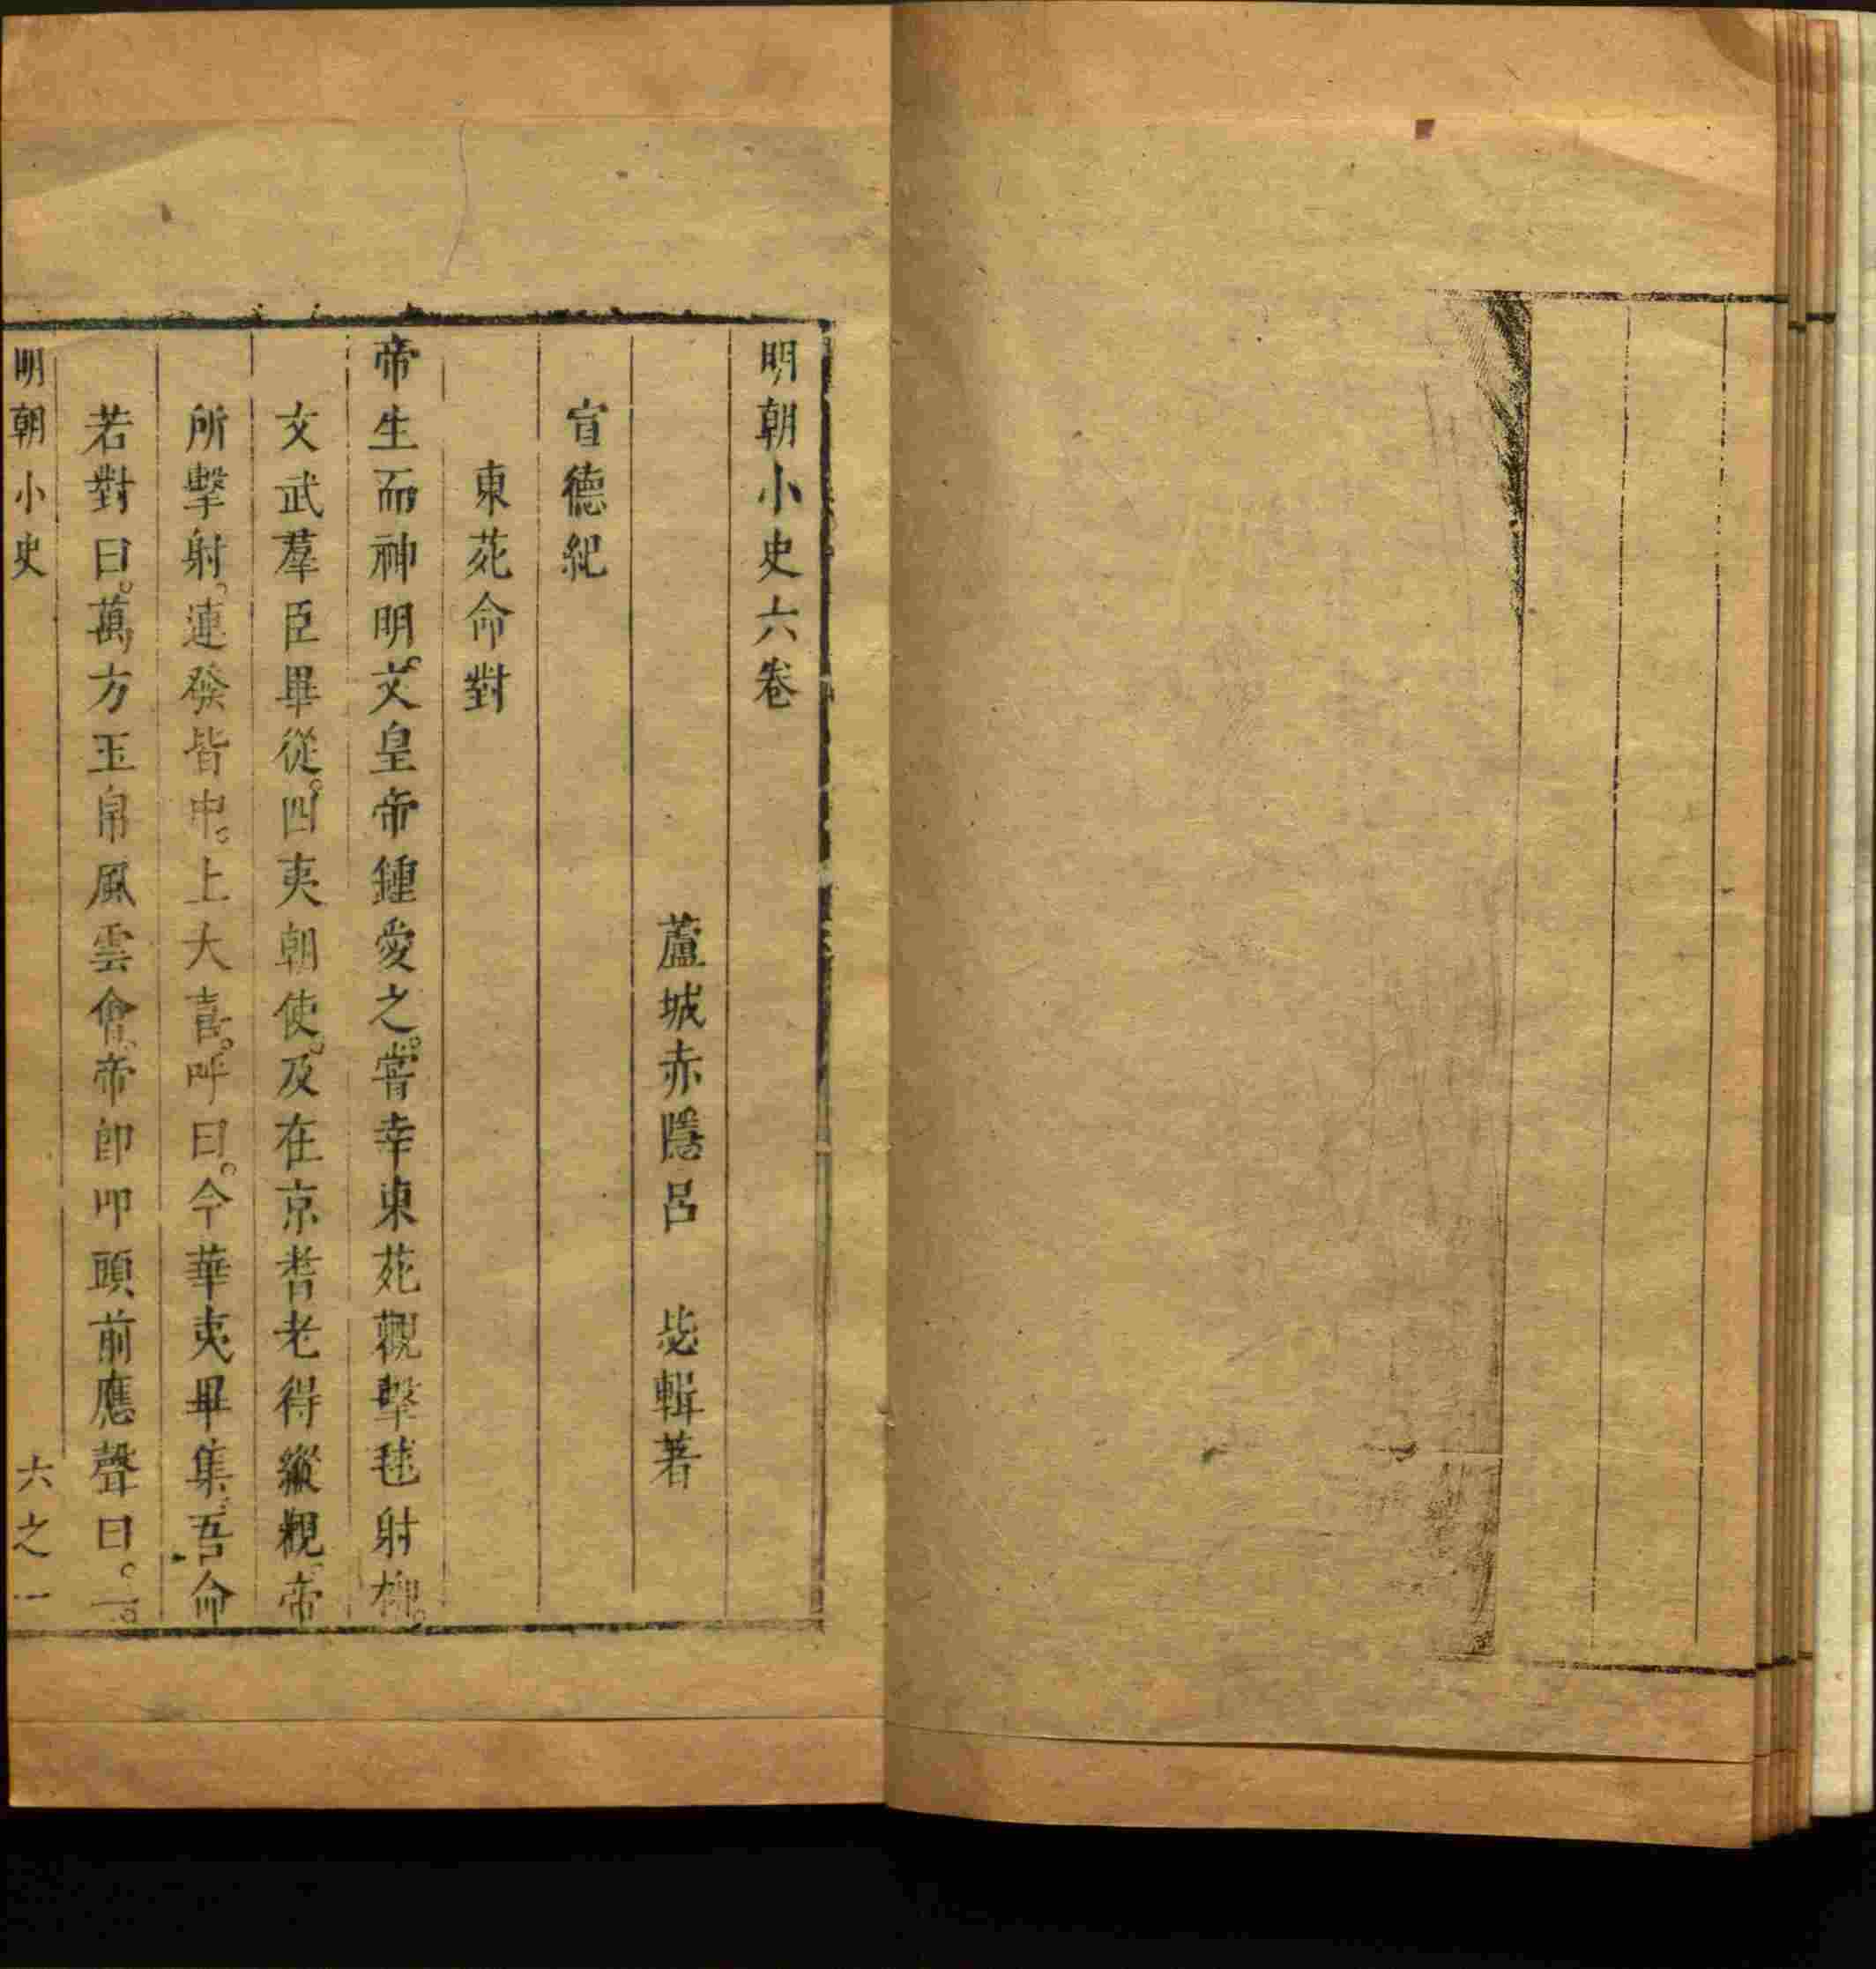 明朝小史六卷
蘆城赤隱呂 毖輯著
宣德紀
東苑命對
帝生而神明文皇帝鍾愛之嘗幸東苑觀擊毬射柳
文武羣臣畢從四夷朝使及在京耆老得縱觀帝
所擊射連發皆中上大喜呼曰今華夷畢集吾命
若對曰萬方玉帛風雲會帝即叩頭前應聲曰一
明朝小史
六之一